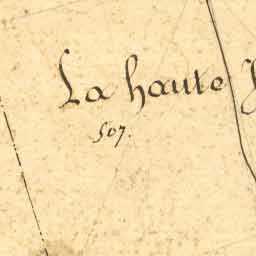 La haute
507.